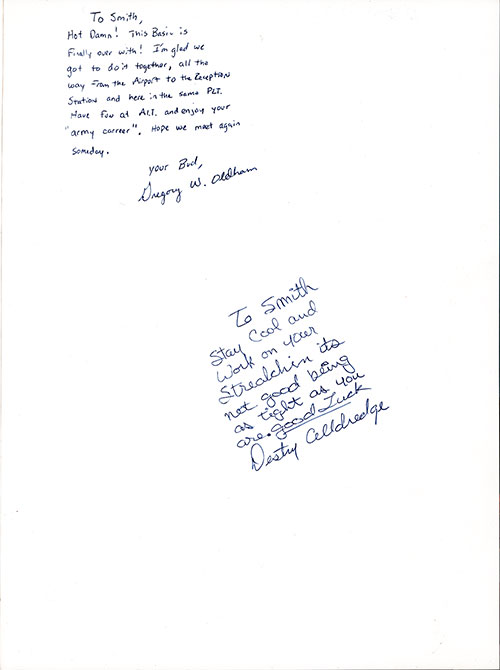 To Smith,
Hot Damn! This Basic is
Finally over with! I'm glad we
got to do it together, all the
way From the Airport to the Reception
Station and here in the same PLT.
Have Fun at A.I.T. and enjoy your
"army carreer". Hope we meet again
someday.
your Bud,
Gregory W. Oldham
To Smith
Stay Cool and
Work on your
Strealchin its
not good being
as tight as you
are. good Luck
Destry